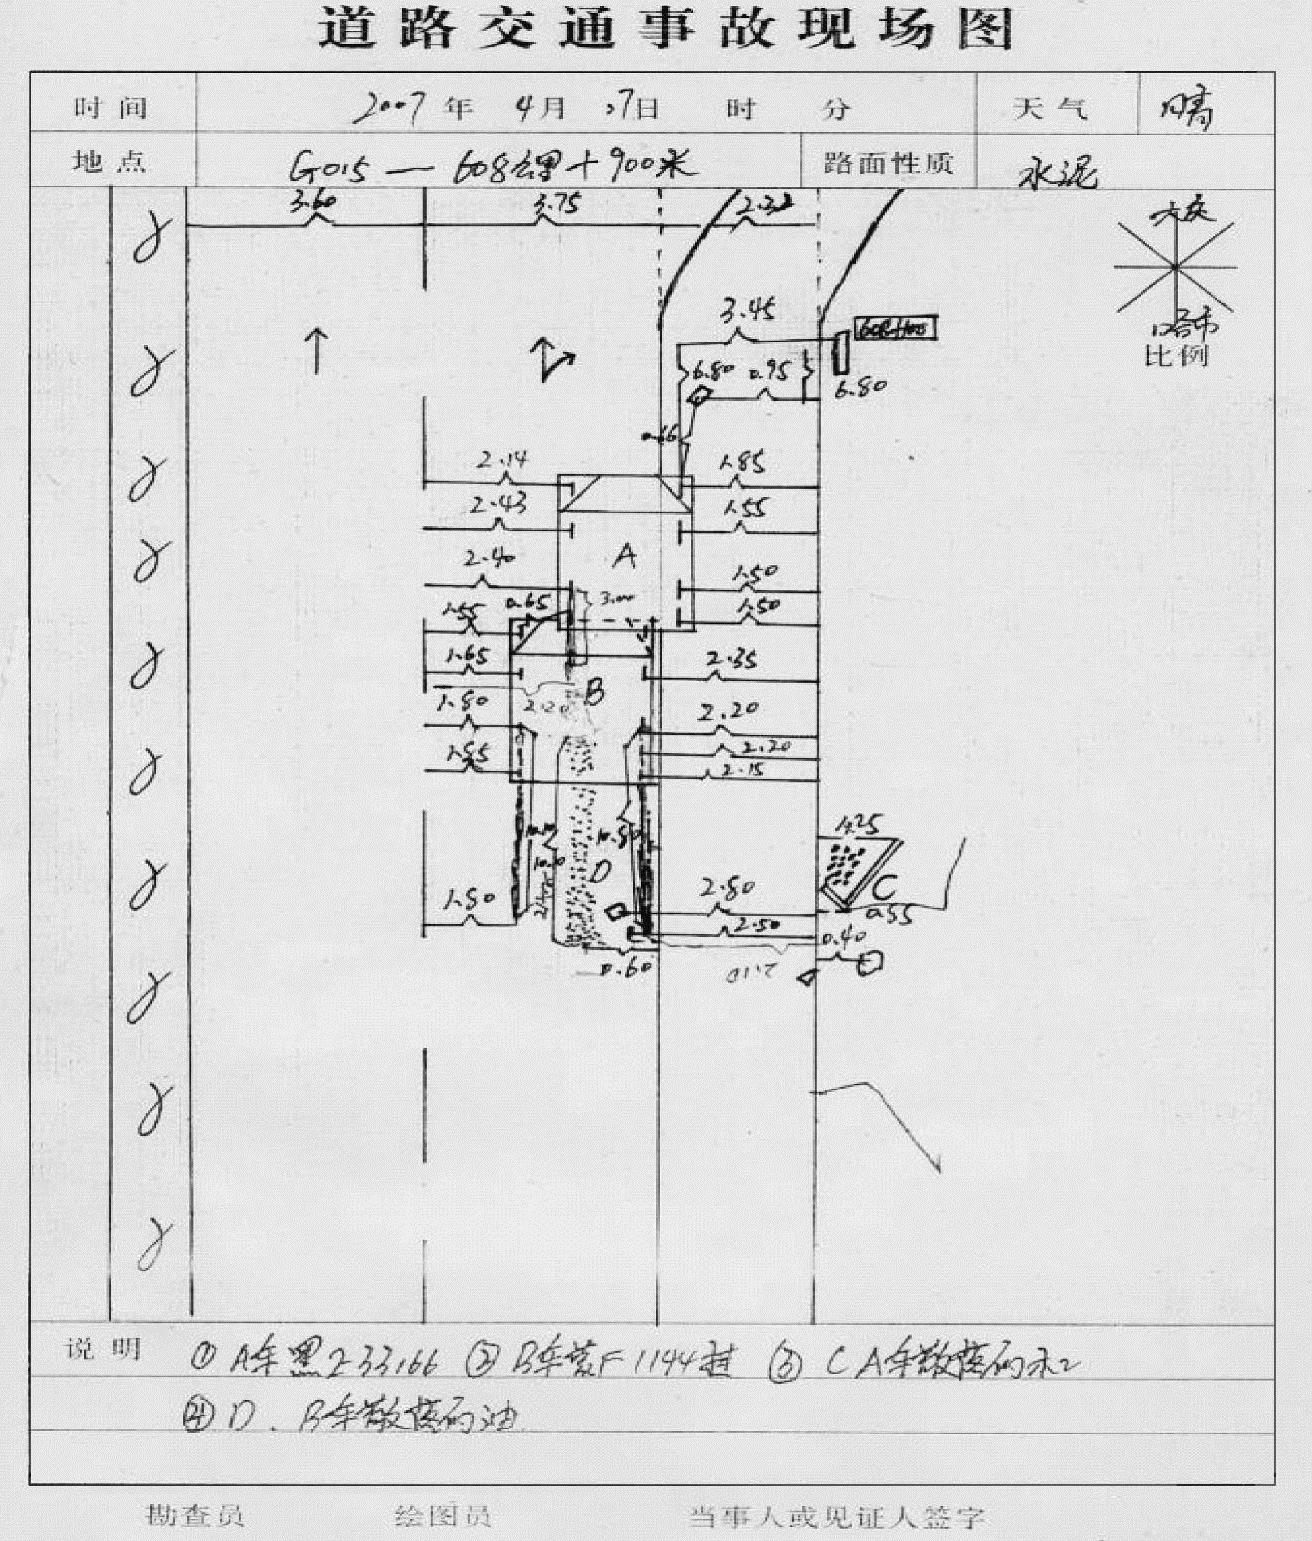 道路交通事故现场图
时间 2007年 4月 17日 时 分 天气 晴
地点 G015 — 608公里+900米 路面性质 水泥
3.60 3.75 2.32
大庆
3.45
哈市
比例
6.80 0.95 6.80
0.66
2.14 1.85
2.43 1.55
A
2.40 1.50
1.55 0.65 3.00 1.50
1.65 2.35
B
1.80 2.20 2.20
1.55 2.20
2.15
1.25
10.80
D C
1.80 2.80 0.55
2.50 0.40
0.60 2.10
说明 ① A车黑 33166 ② B车蒙F1144挂 ③ C A车散落
④ D、B车散落 油
勘查员 绘图员 当事人或见证人签字